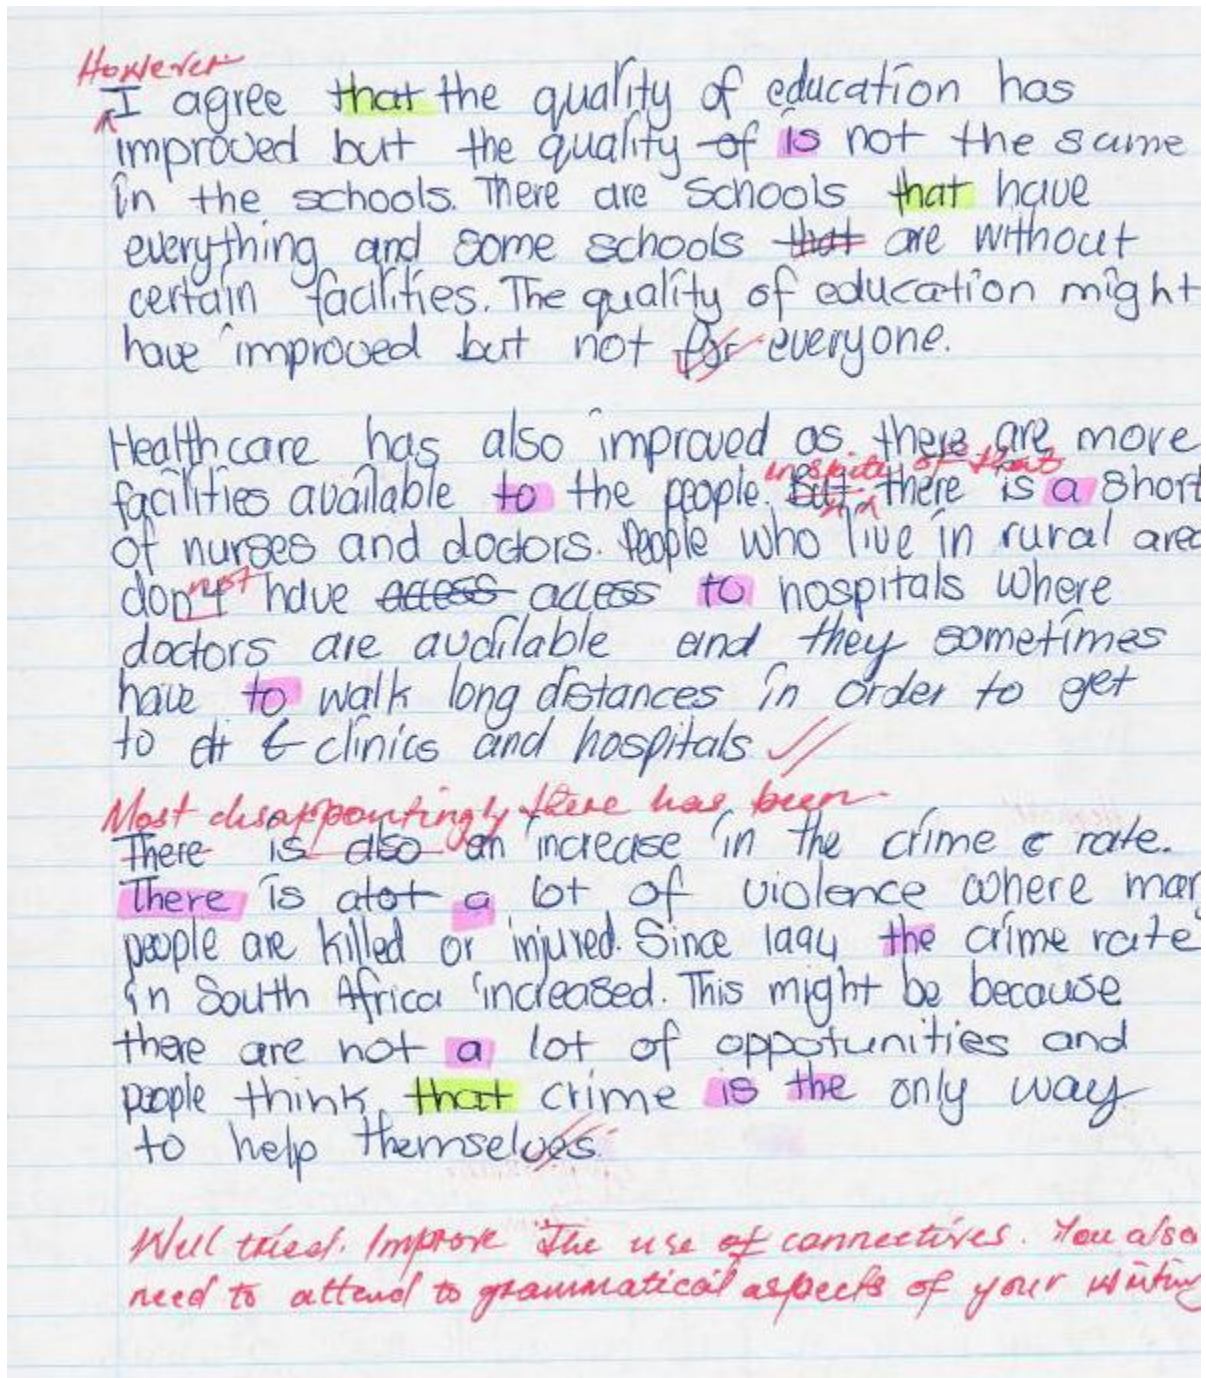 However
I agree that the quality of education has
improved but the quality of is not the same
in the schools. There are schools that have
everything and some schools that are without
certain facilities. The quality of education might
have improved but not for everyone.
Healthcare has also improved as there are more
inspite of that
facilities available to the people. But there is a short
of nurses and doctors. People who live in rural area
not
don't have access access to hospitals where
doctors are available and they sometimes
have to walk long distances in order to get
to clinics and hospitals
Most disappointingly there has been
There is also an increase in the crime c rate.
There is alot a lot of violence where man
people are killed or injured. Since 1994 the crime rate
in South Africa increased. This might be because
there are not a lot of oppotunities and
people think that crime is the only way
to help themselves.
Well tried. Improve the use of connectives. You also
need to attend to grammatical aspects of your writing